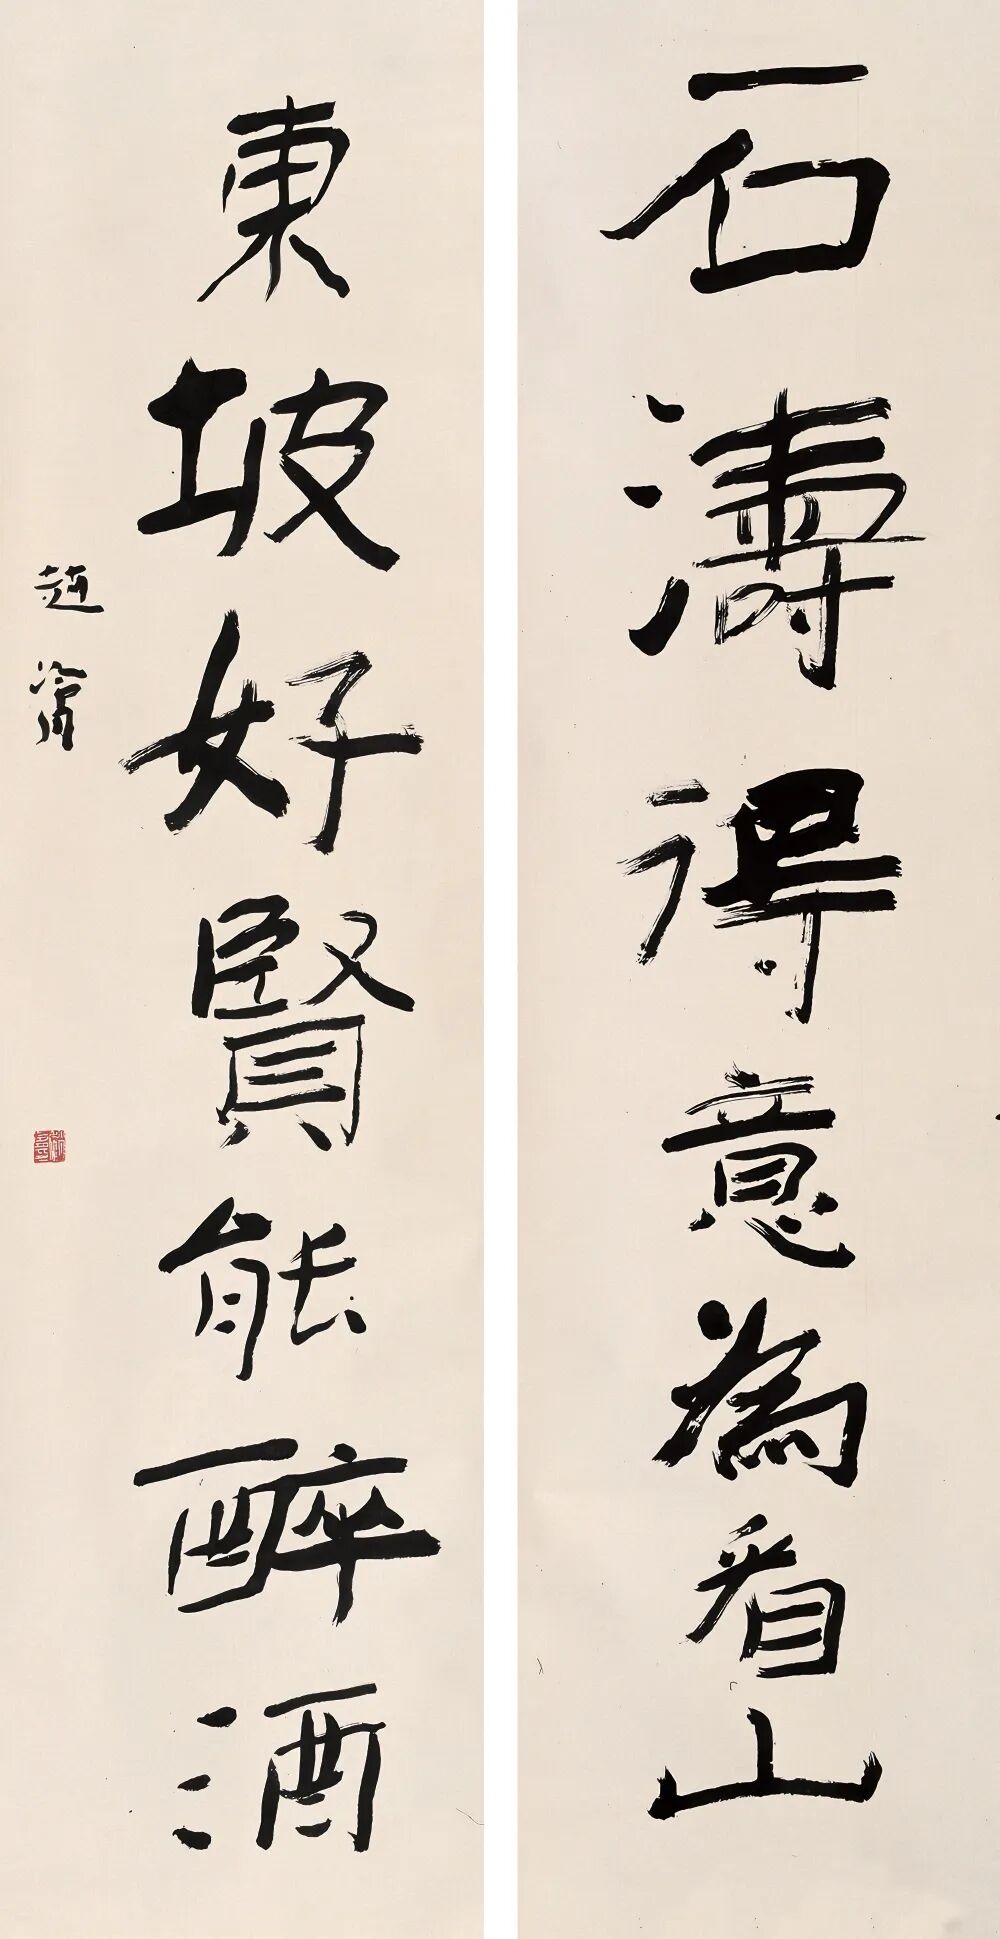 石濤得意為看山
東坡好賢能醉酒
趙冷月